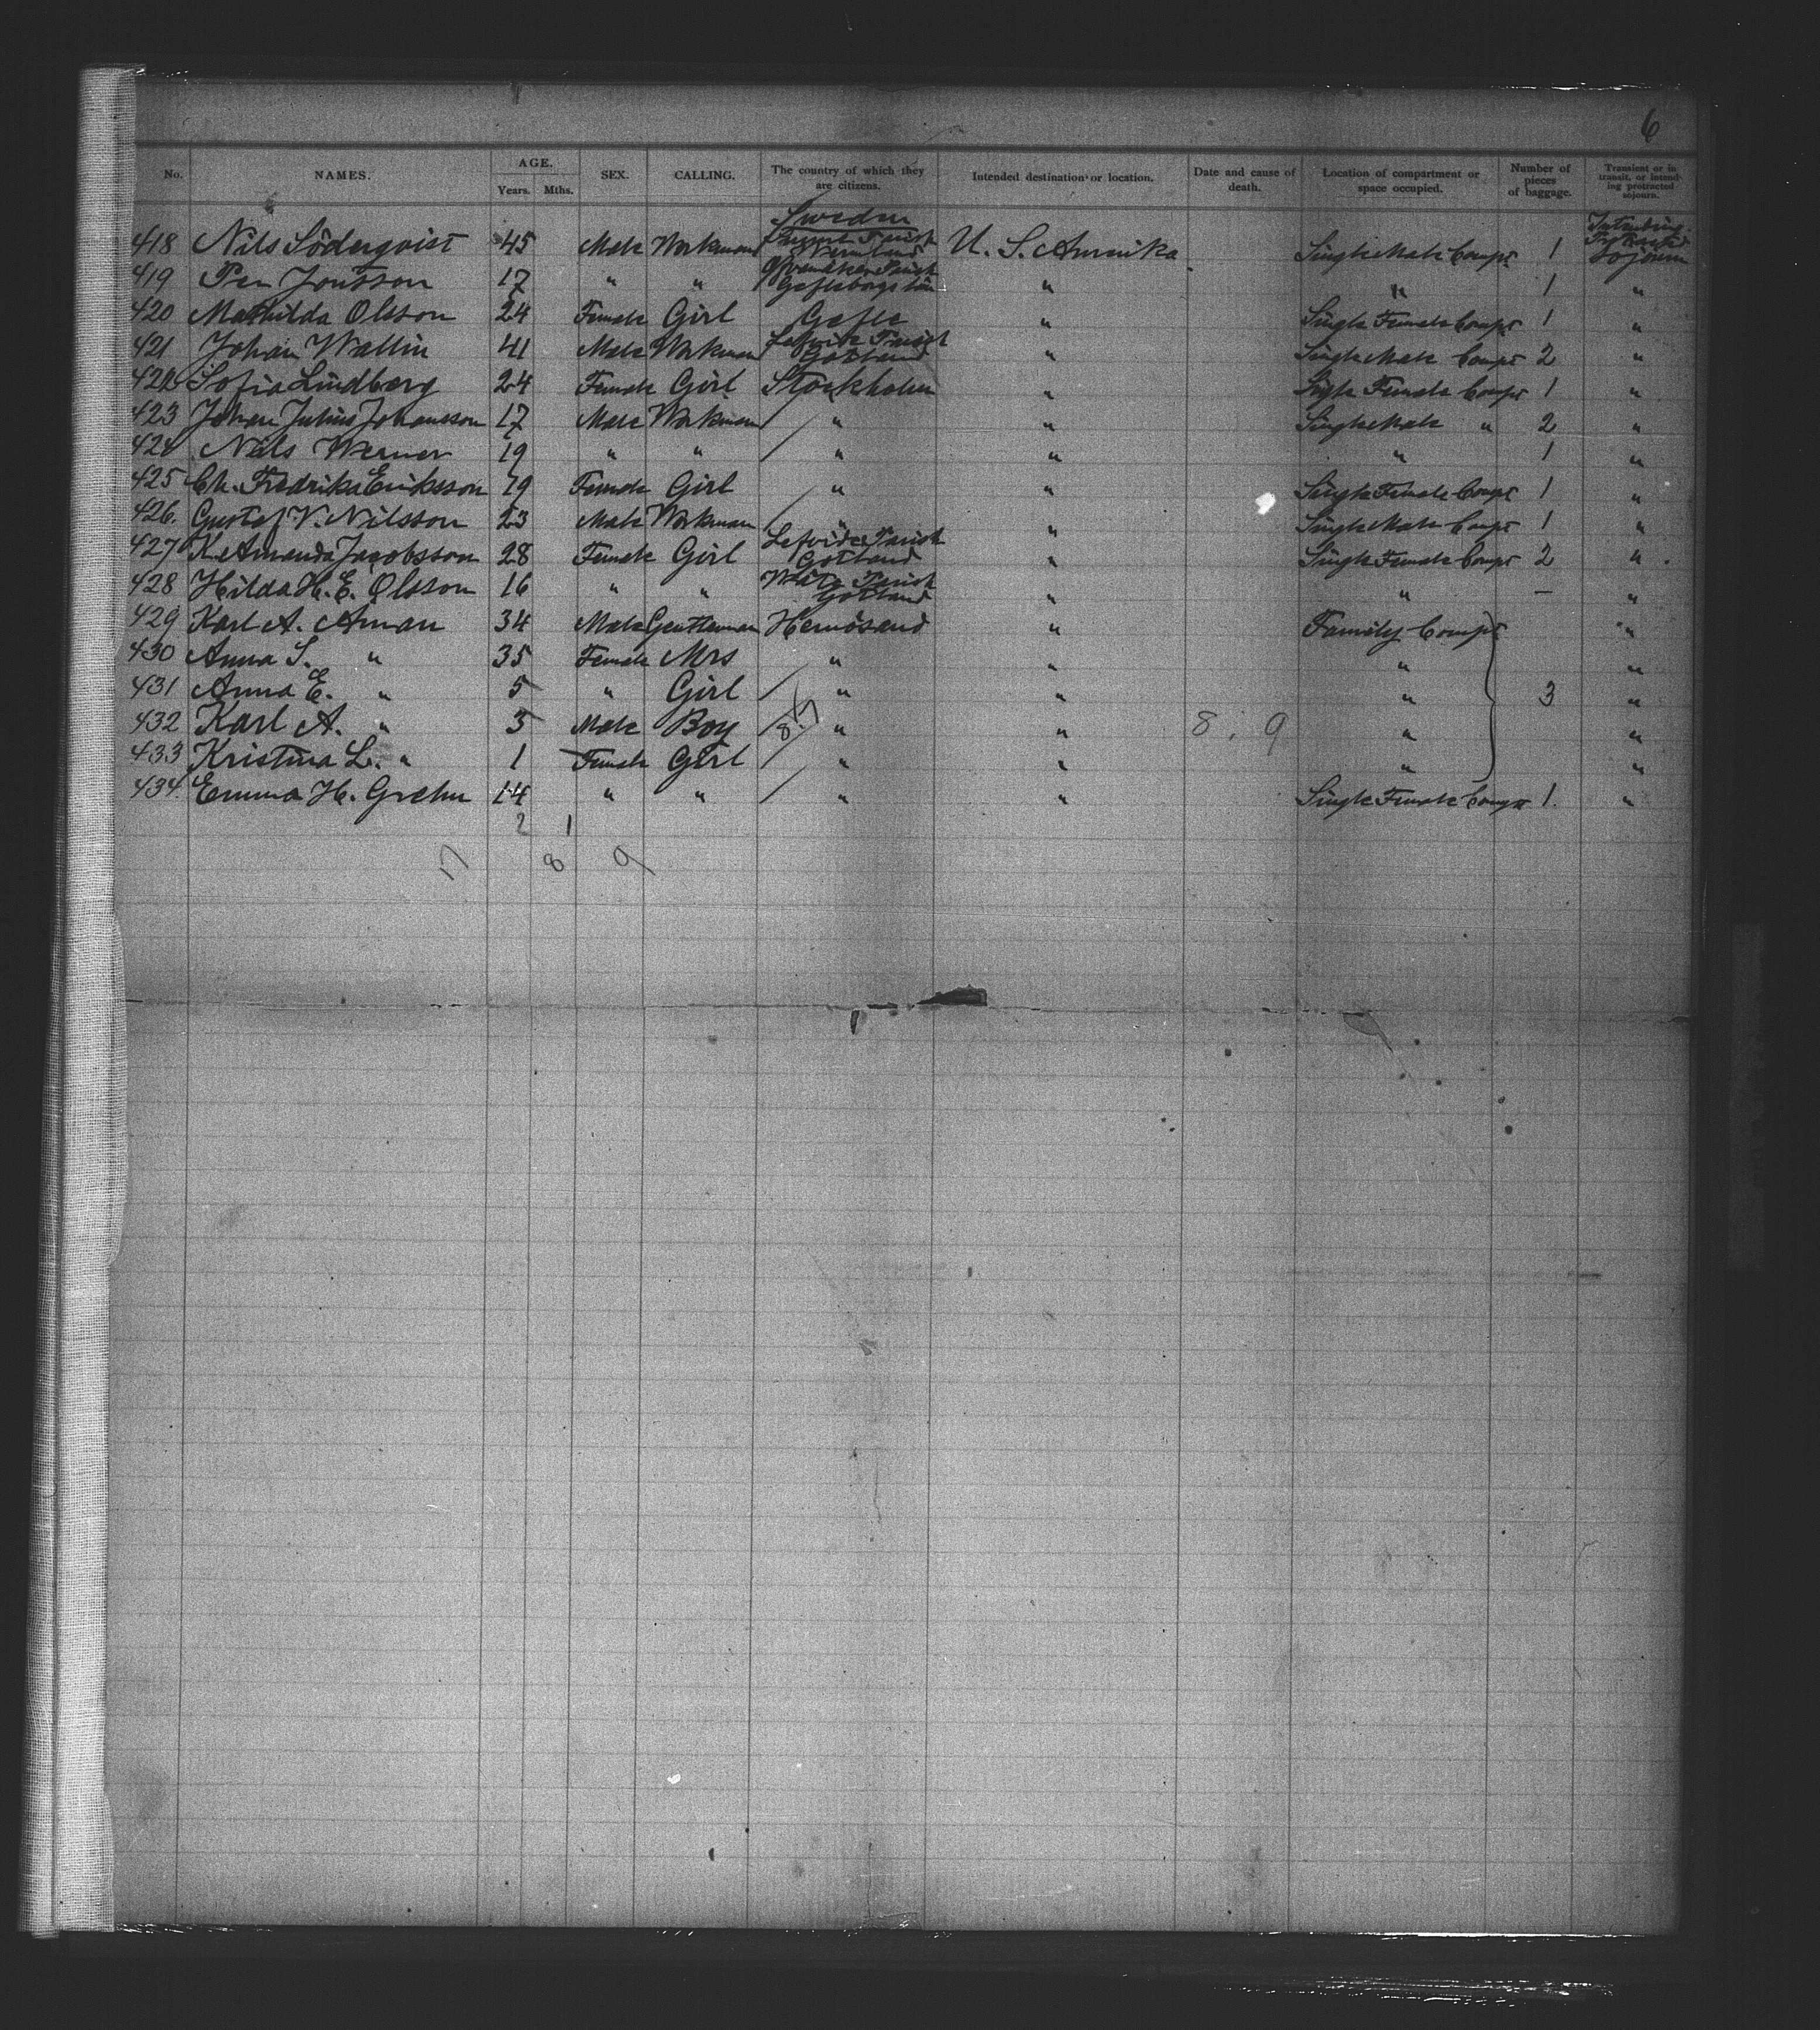 6
No. NAMES. AGE. Years. Mths. SEX. CALLING. The country of which they are citizens. Intended destination or location. Date and cause of death. Location of compartment or space occupied. Number of pieces of baggage. Transient or in transit, or intending protracted sojourn.
Sweden
418 Nils Söderqvist 45 Male Workman Parish Wermland U. S. Amerika Single Male Compt 1 Intending Protracted Sojourn
419 Per Jonsson 17 " " Parish Gefleborgs län " " 1 "
420 Mathilda Olsson 24 Female Girl Gefle " Single Female Compt 1 "
421 Johan Wallin 41 Male Workman Parish Gotland " Single Male Compt 2 "
422 Sofia Lindberg 24 Female Girl Stockholm " Single Female Compt 1 "
423 Johan Julius Johansson 17 Male Workman " " Single Male " 2 "
424 Nils Werner 19 " " " " " 1 "
425 Ch. Fredrika Eriksson 19 Female Girl " " Single Female Compt 1 "
426. Gustaf V. Nilsson 23 Male Workman " Single Male Compt 1 "
427 K. Amanda Jacobsson 28 Female Girl Lefvide Parish Gotland " Single Female Compt 2 "
428 Hilda H. E. Olsson 16 " " Parish Gotland " " — "
429 Karl A. Aman 34 Male Gentleman Hernösand " Family Compt "
430 Anna S. " 35 Female Mrs " " " "
431 Anna E. " 5 " Girl " " " 3 "
432 Karl A. " 3 Male Boy " " 8. 9 " "
433 Kristina L. " 1 Female Girl " " " "
434. Emma H. Grehn 14 " " " " Single Female Compt 1. "
2 1
17 8 9